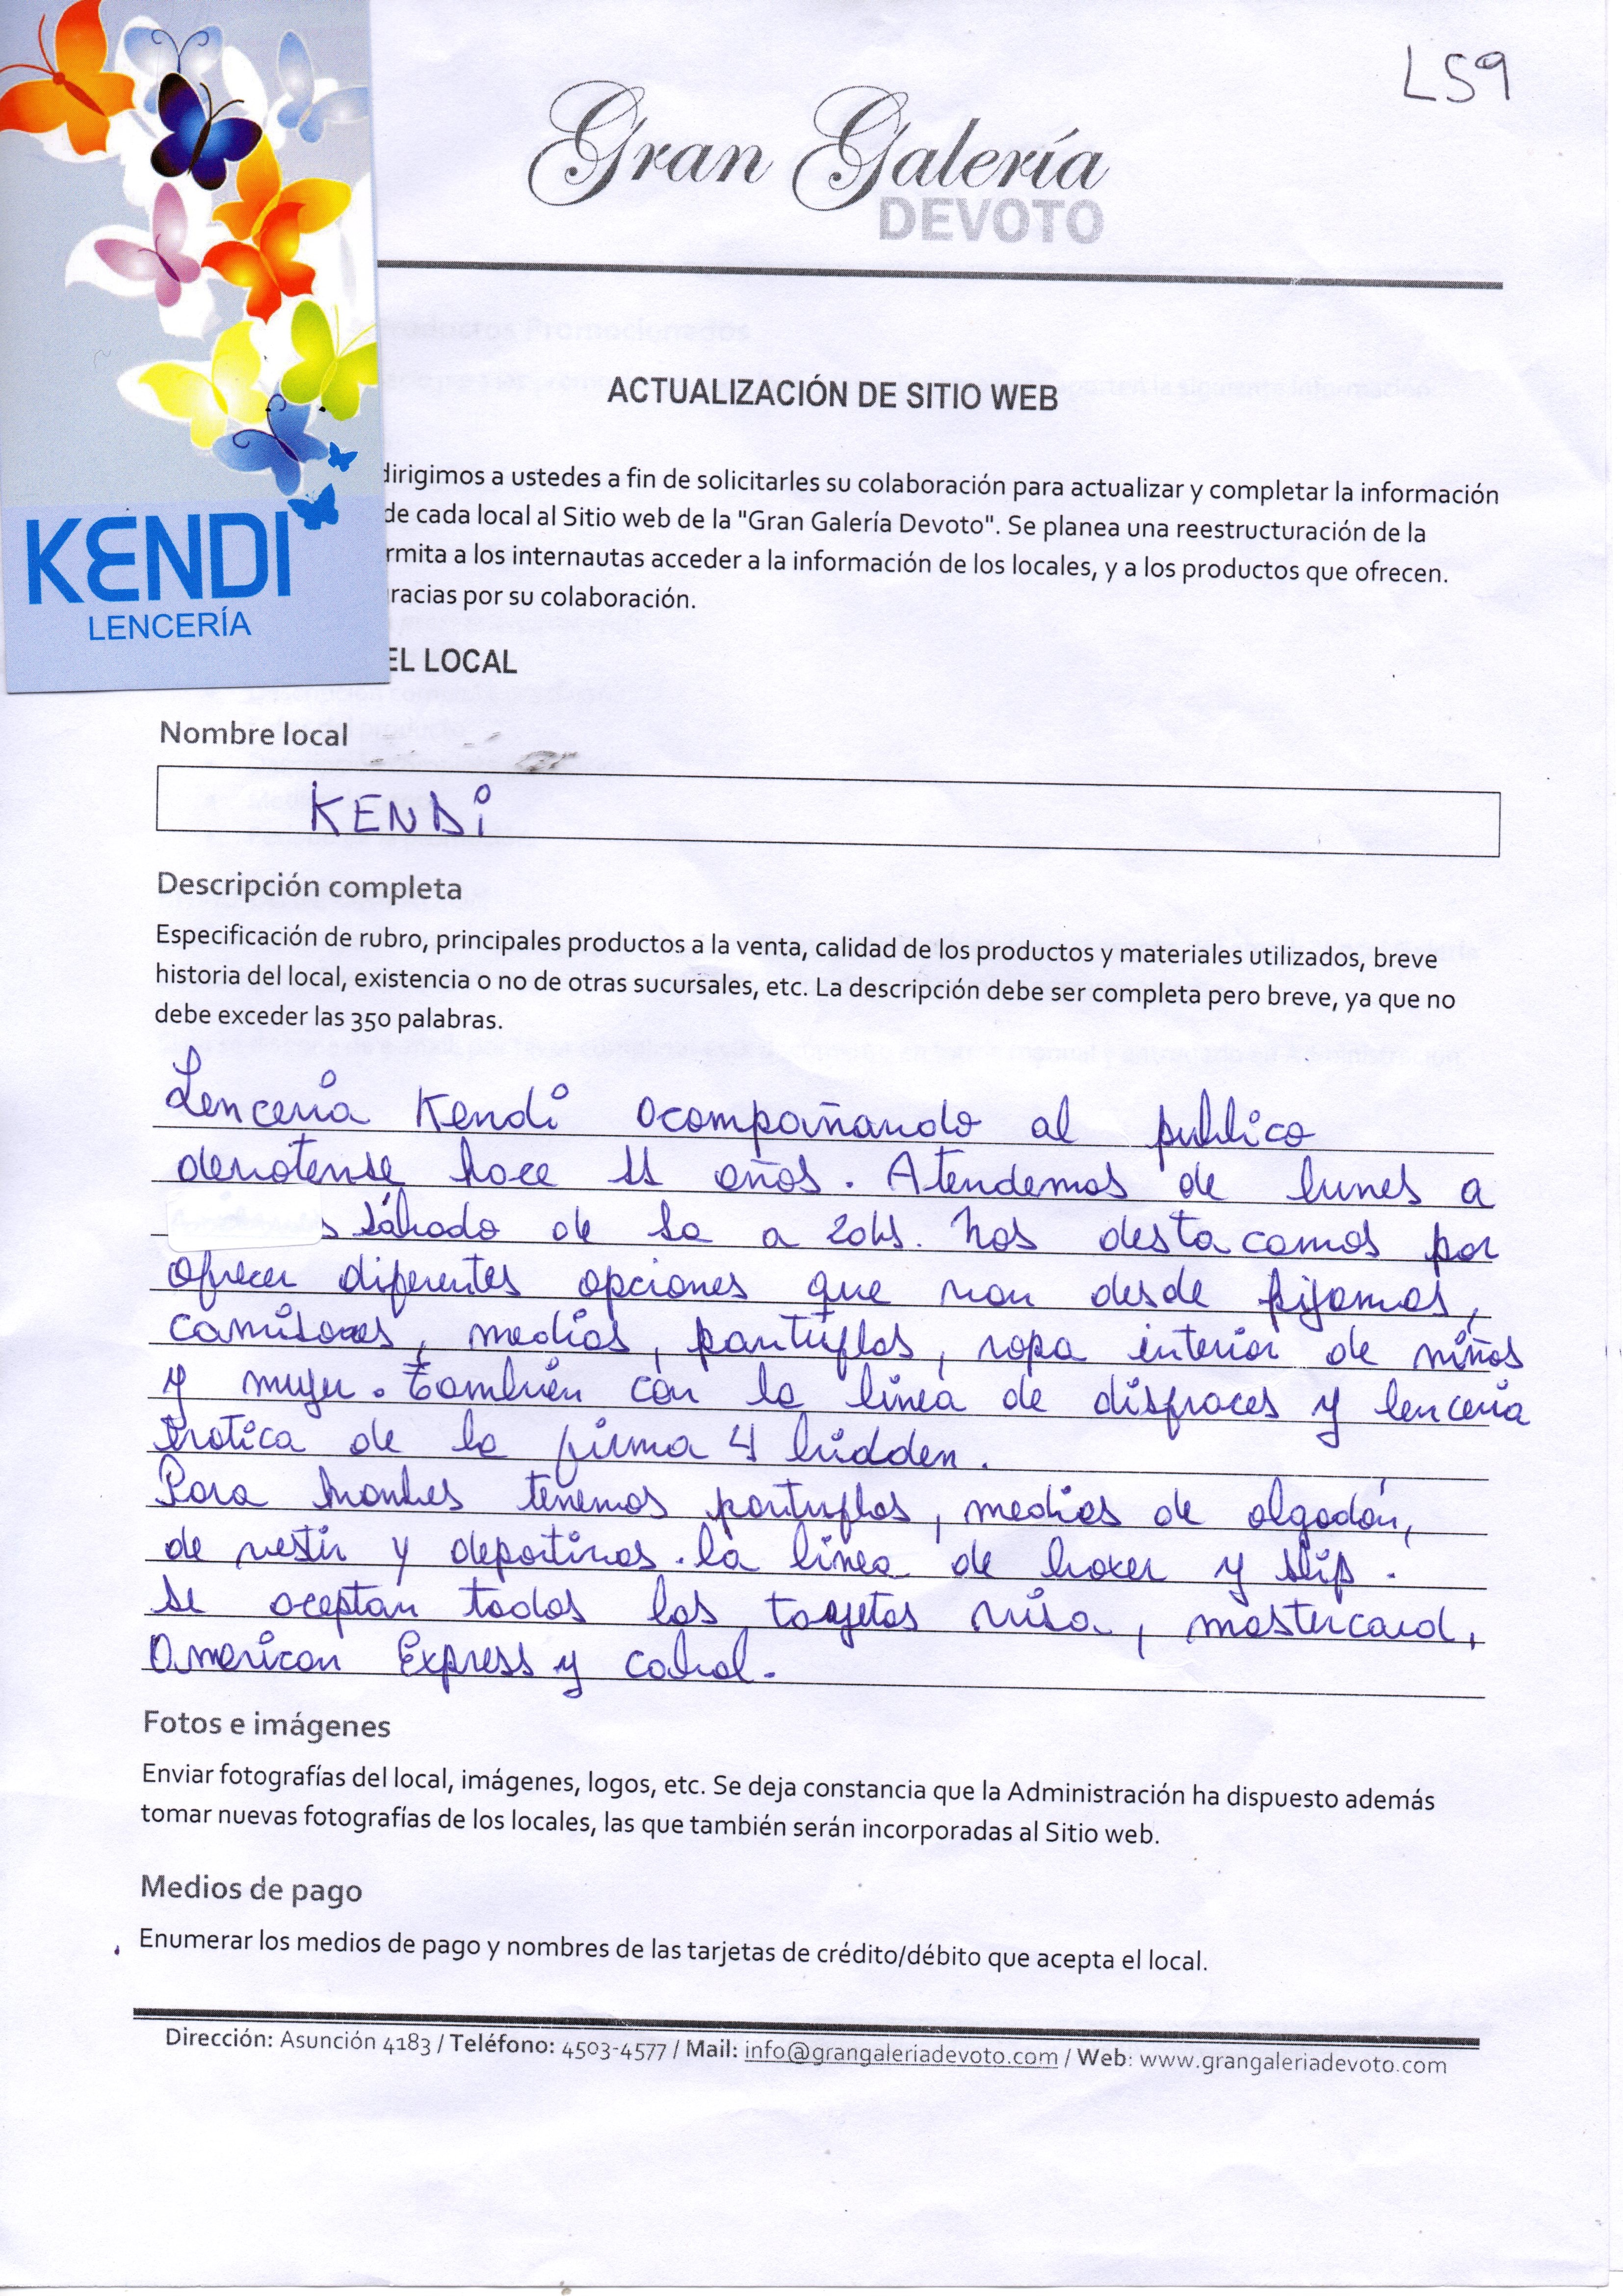 L59
Gran Galería
DEVOTO
ACTUALIZACIÓN DE SITIO WEB
dirigimos a ustedes a fin de solicitarles su colaboración para actualizar y completar la información
de cada local al Sitio web de la "Gran Galería Devoto". Se planea una reestructuración de la
rmita a los internautas acceder a la información de los locales, y a los productos que ofrecen.
racias por su colaboración.
KENDI
LENCERÍA
EL LOCAL
Nombre local
KENDI
Descripción completa
Especificación de rubro, principales productos a la venta, calidad de los productos y materiales utilizados, breve
historia del local, existencia o no de otras sucursales, etc. La descripción debe ser completa pero breve, ya que no
debe exceder las 350 palabras.
Lencería Kendi acompañando al publico
devotense hace 11 años. Atendemos de lunes a
sábado de 10 a 20hs. Nos destacamos por
ofrecer diferentes opciones que van desde pijamas,
camisones, medias, pantuflas, ropa interior de niños
y mujer. También con la linea de disfraces y lenceria
erotica de la firma 4 hidden.
Para hombres tenemos pantuflas, medias de algodón,
de vestir y deportivas. la linea de boxer y slip.
Se aceptan todas las tarjetas visa, mastercard,
American Express y cabal.
Fotos e imágenes
Enviar fotografías del local, imágenes, logos, etc. Se deja constancia que la Administración ha dispuesto además
tomar nuevas fotografías de los locales, las que también serán incorporadas al Sitio web.
Medios de pago
Enumerar los medios de pago y nombres de las tarjetas de crédito/débito que acepta el local.
Dirección: Asunción 4183 / Teléfono: 4503-4577 / Mail: info@grangaleriadevoto.com / Web: www.grangaleriadevoto.com